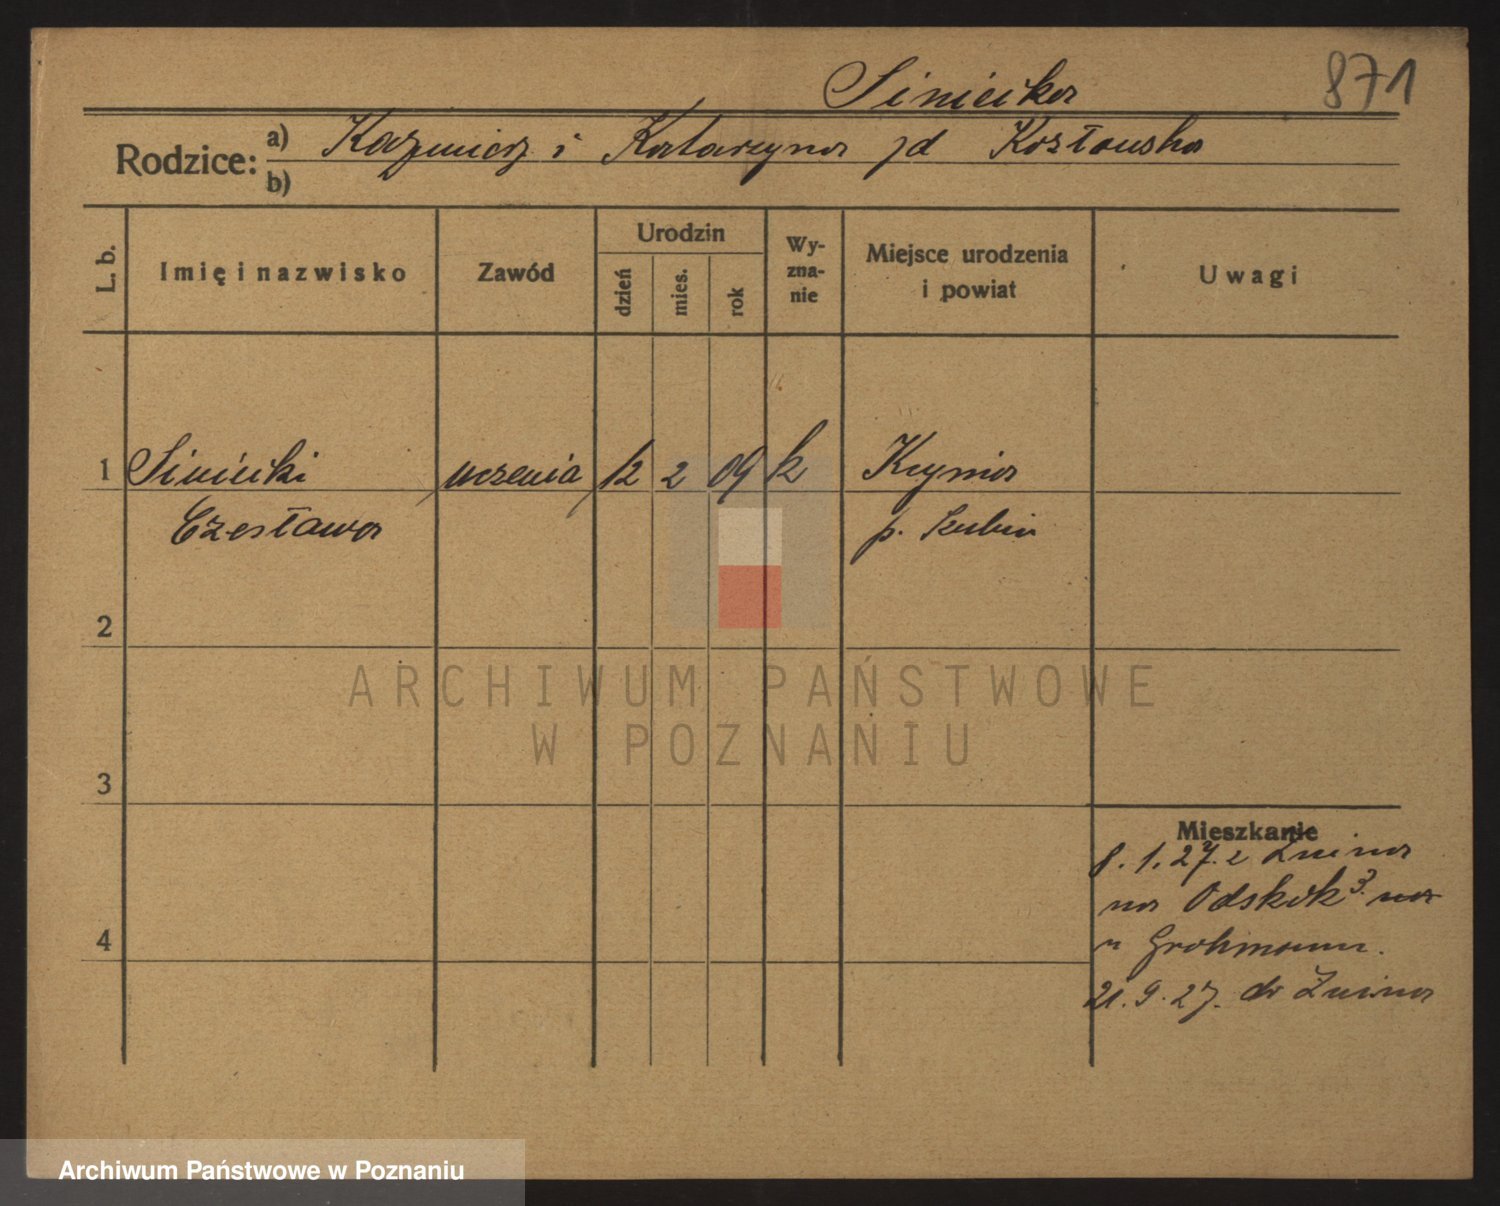 Siniecka
871
Rodzice: a) Kazmierz i Katarzyna jd Kozłowska
b)
L. b.
Imię i nazwisko
Zawód
Urodzin
dzień
mies.
rok
Wy-
zna-
nie
Miejsce urodzenia
i powiat
Uwagi
1 Siniecki uczenia 12 2 09 k Kcynia
Czesława p. Szubin
2
3
4
Mieszkanie
8.1.27. z Żnina
na
u Grohmann.
21.9.27. do Żnina
ARCHIWUM PAŃSTWOWE
W POZNANIU
Archiwum Państwowe w Poznaniu